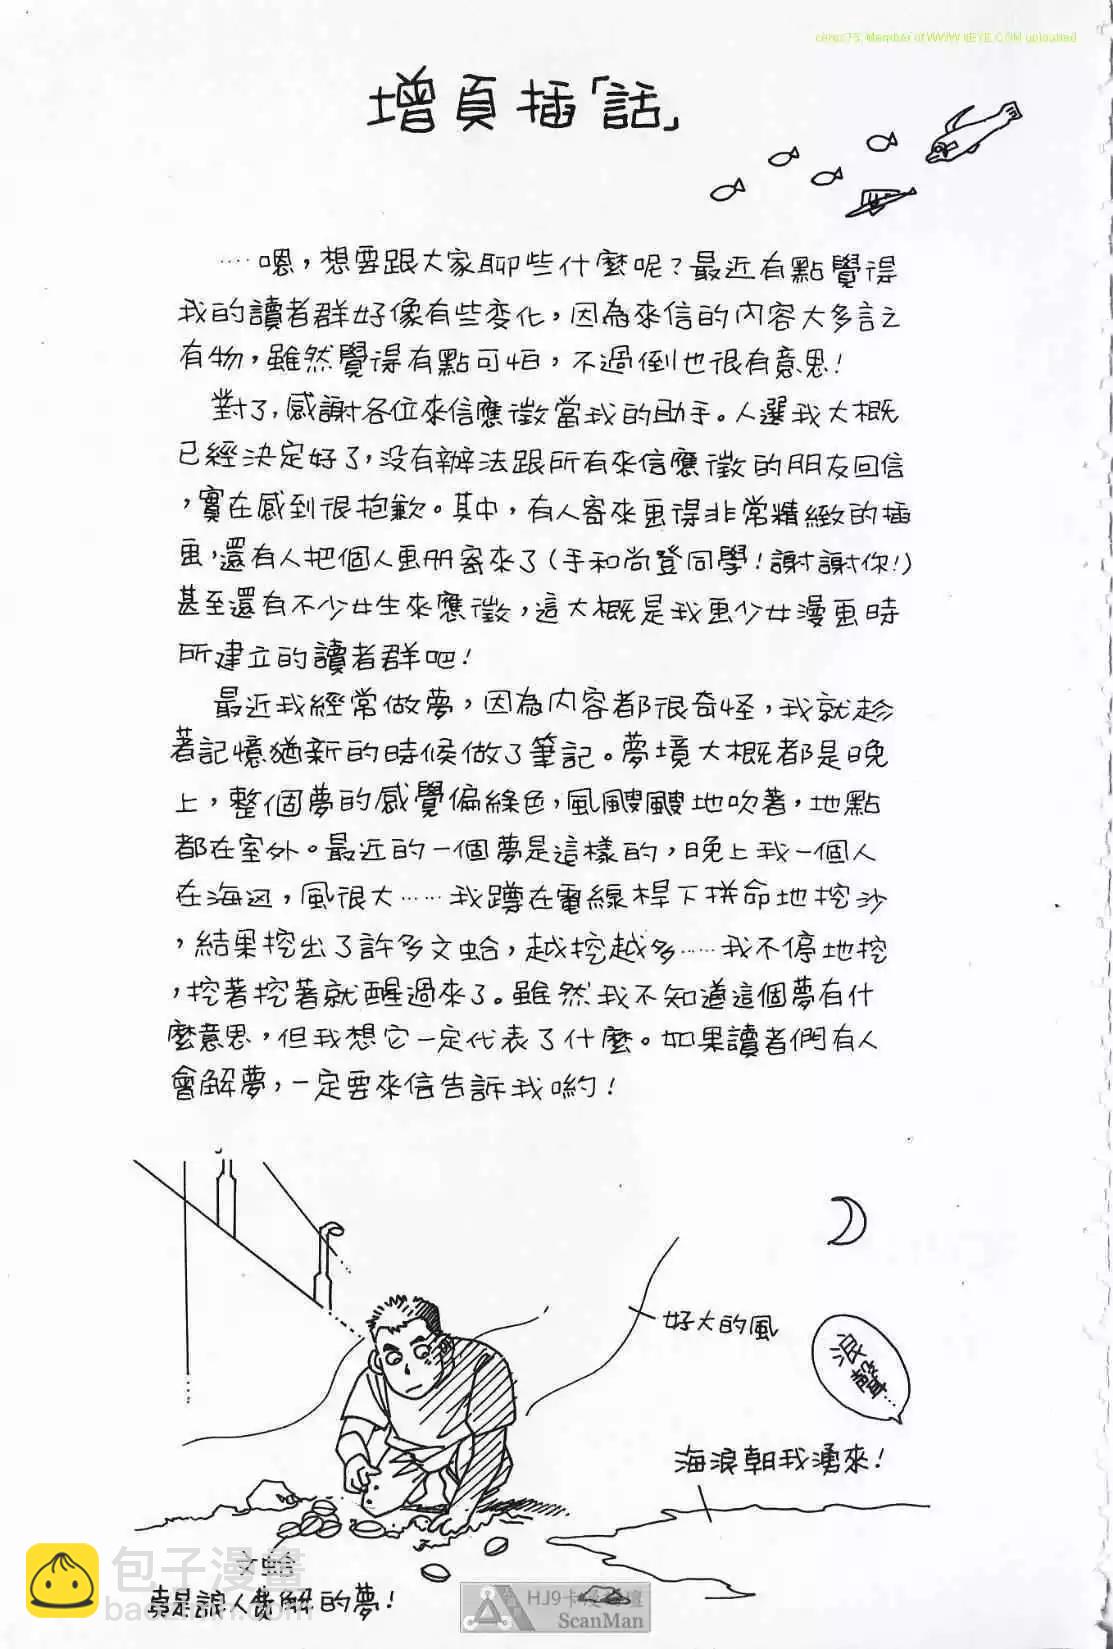 cerus75, Member of WWW.8EYE.COM uploaded
增頁插「話」
‥‥嗯,想要跟大家聊些什麼呢?最近有點覺得
我的讀者群好像有些变化,因為來信的內容大多言之
有物,雖然覺得有點可怕,不過倒也很有意思!
對了,感謝各位來信應徵當我的助手。人選我大概
已經決定好了,沒有辦法跟所有來信應徵的朋友回信
,實在感到很抱歉。其中,有人寄來畫得非常精緻的插
畫,還有人把個人畫册寄來了(手和尚登同學!謝謝你!)
甚至還有不少女生來應徵,這大概是我畫少女漫畫時
所建立的讀者群吧!
最近我經常做夢,因為內容都很奇怪,我就趁
著記憶猶新的時候做了筆記。夢境大概都是晚
上,整個夢的感覺偏綠色,風颼颼地吹著,地點
都在室外。最近的一個夢是這樣的,晚上我一個人
在海边,風很大‥‥‥我蹲在電線桿下拼命地挖沙
,結果挖出了許多文蛤,越挖越多‥‥‥我不停地挖
,挖著挖著就醒過來了。雖然我不知道這個夢有什
麼意思,但我想它一定代表了什麼。如果讀者們有人
會解夢,一定要來信告訴我喲!
好大的風
浪聲…
海浪朝我湧來!
文蛤
真是讓人費解的夢!
包子漫畫
baozimh.com
HJ9卡漫論壇
ScanMan